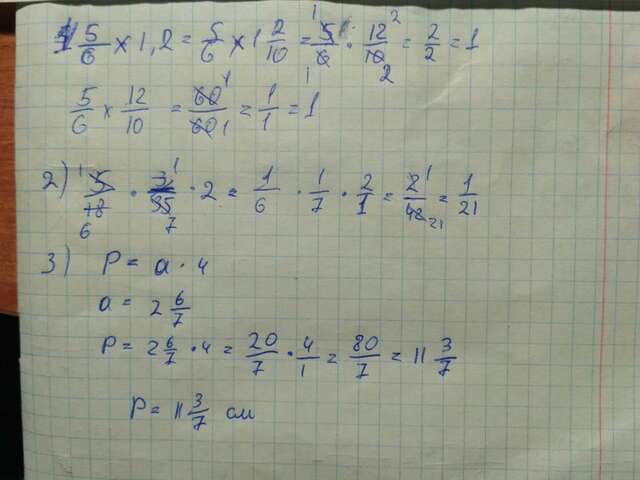 1) 5/6 × 1,2 = 5/6 × 1 2/10 = 5/6 · 12/10 = 2/2 = 1
5/6 × 12/10 = 60/60 = 1/1 = 1
2) 5/18 · 3/35 · 2 = 1/6 · 1/7 · 2/1 = 2/42 = 1/21
3) P = a · 4
a = 2 6/7
P = 2 6/7 · 4 = 20/7 · 4/1 = 80/7 = 11 3/7
P = 11 3/7 см